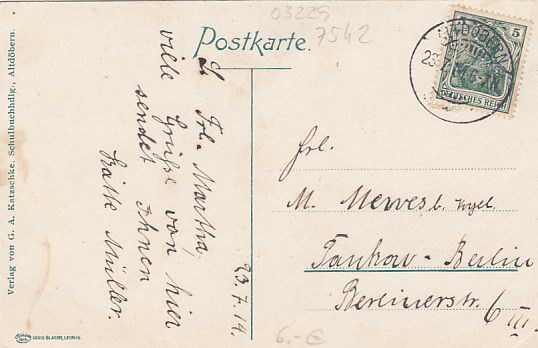 03229
7542
Postkarte.
5
ALTDÖBERN
23.
DEUTSCHES REICH
L. Frl. Martha,
viele Grüße von hier
sendet Ihnen
Käthe Müller.
23.7.14.
Frl.
M. Mewes b.
Pankow-Berlin
Berlinerstr. 6 III.
6,-€
Verlag von G. A. Katzschke, Schulbuchhdlg., Altdöbern.
LOUIS GLASER, LEIPZIG.